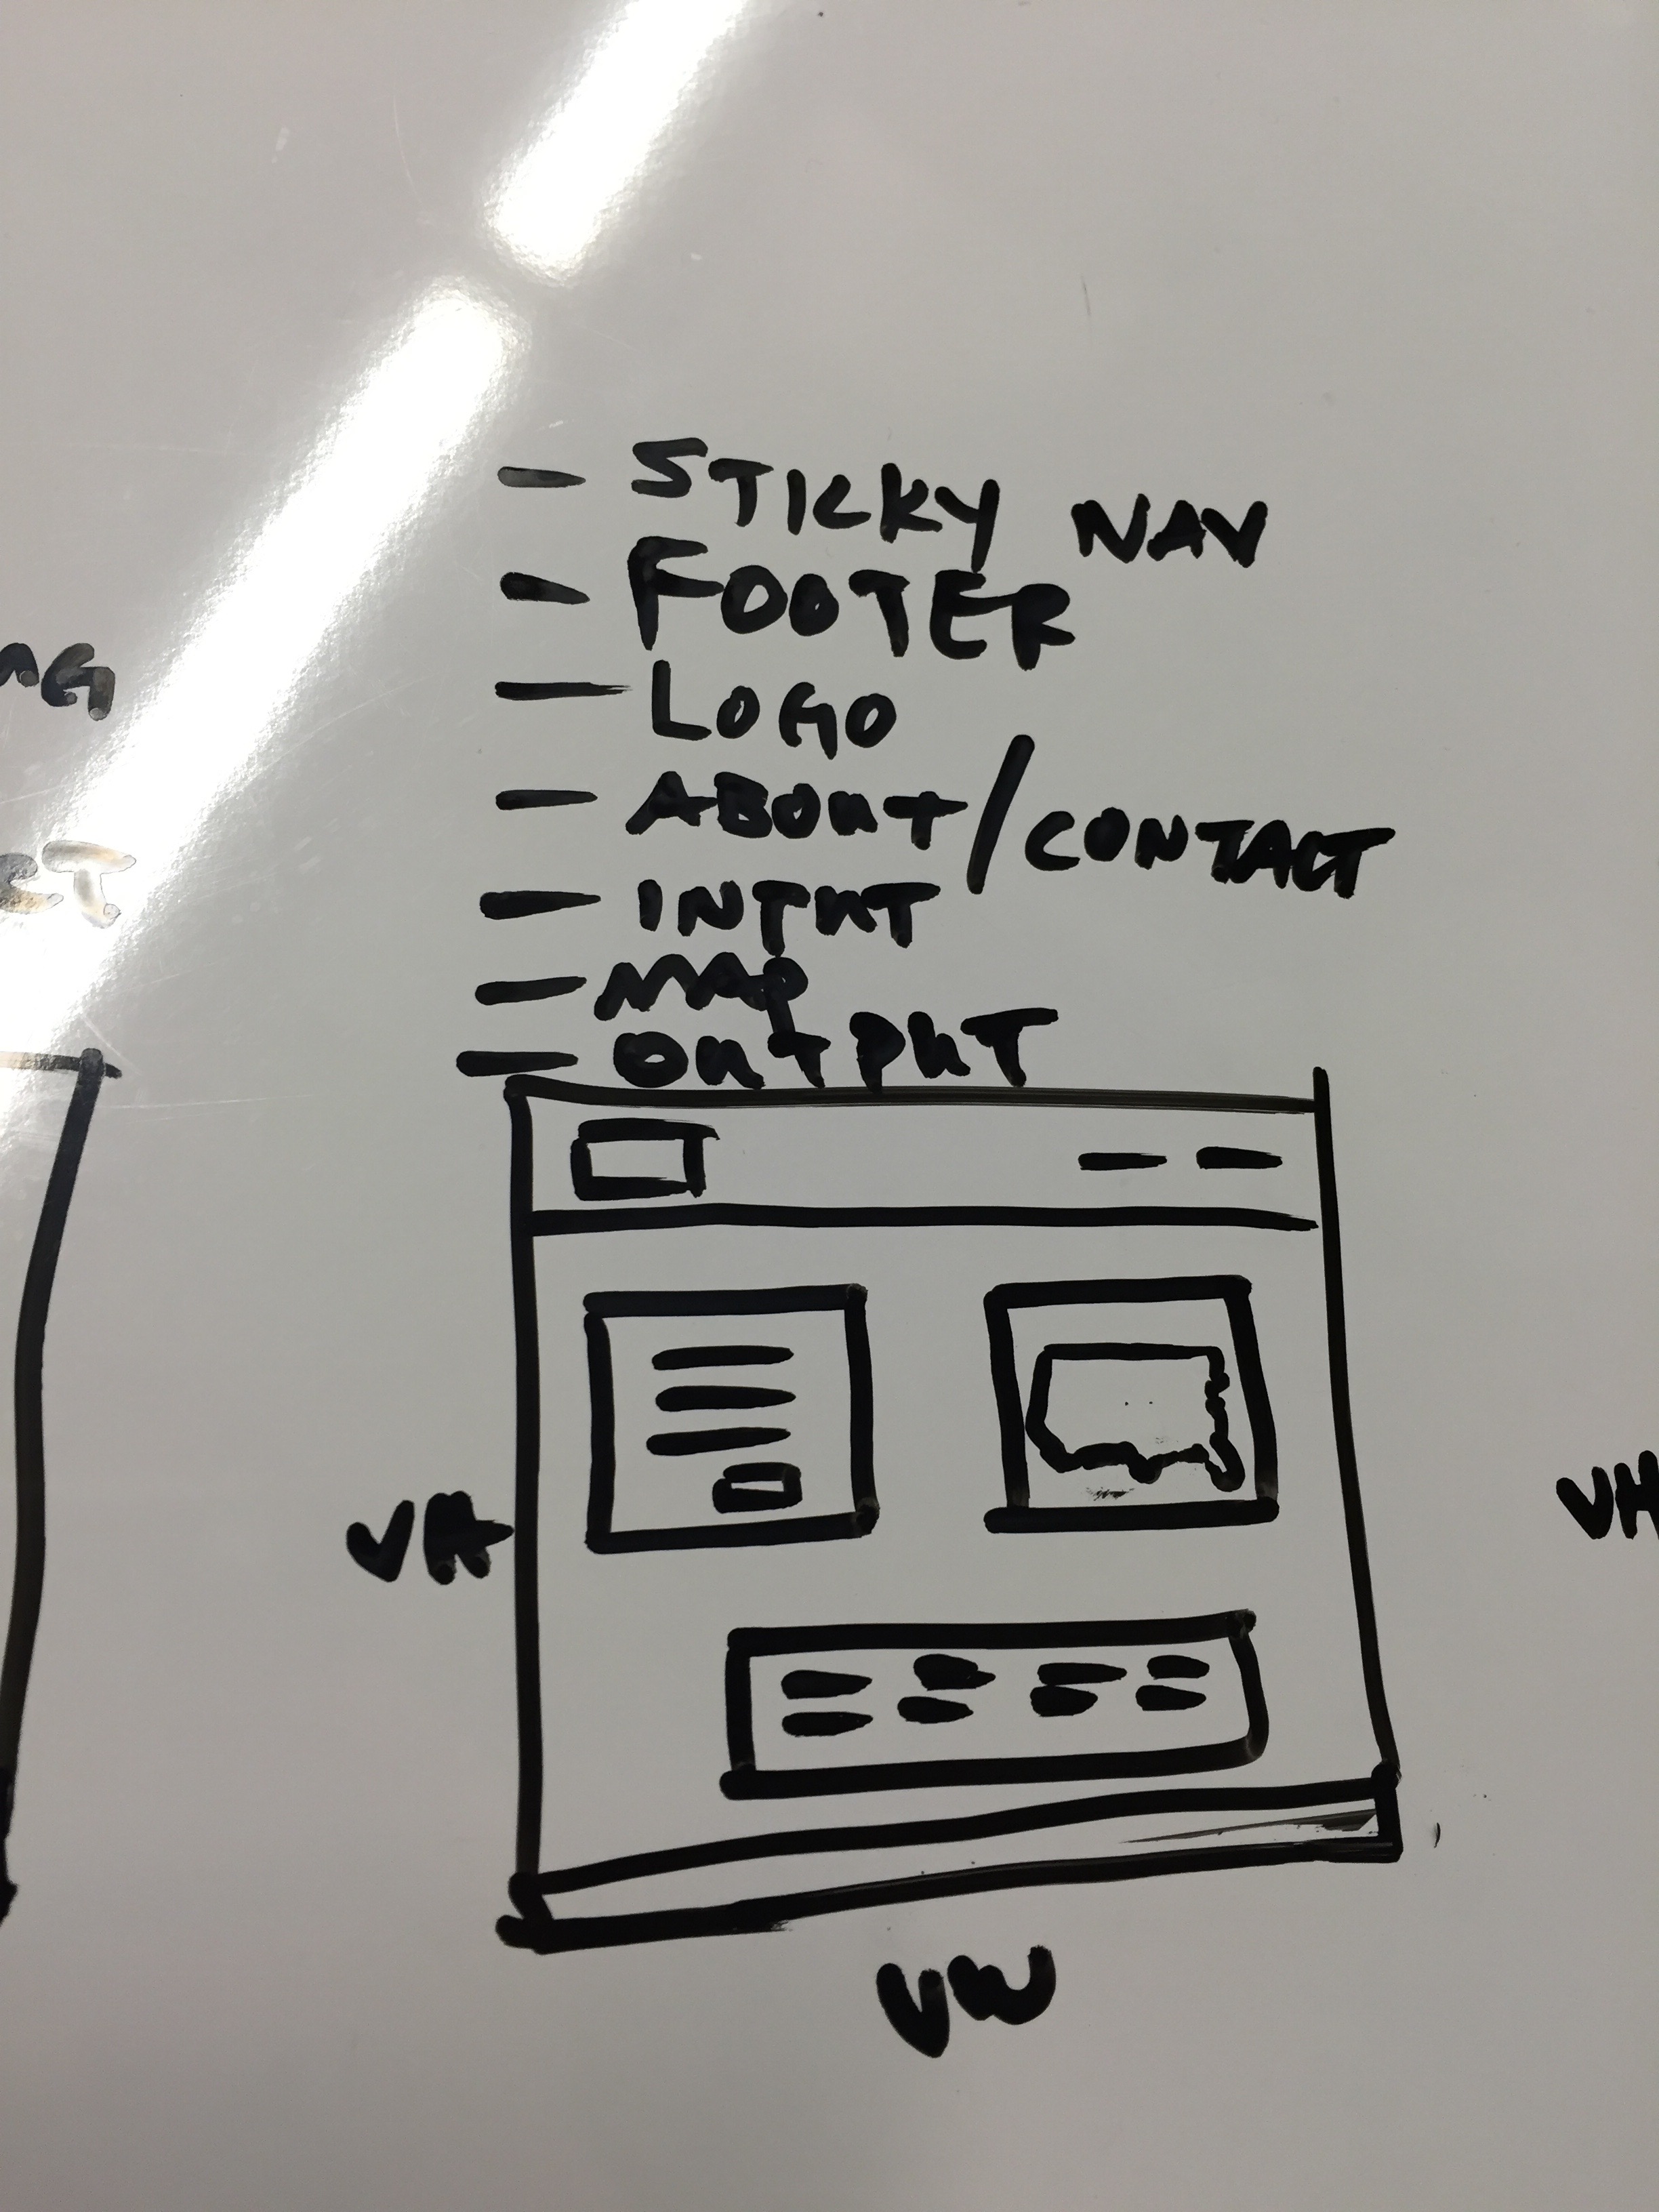 - STICKY NAV
- FOOTER
- LOGO
- ABOUT/CONTACT
- INPUT
- MAP
- OUTPUT
VH
VW